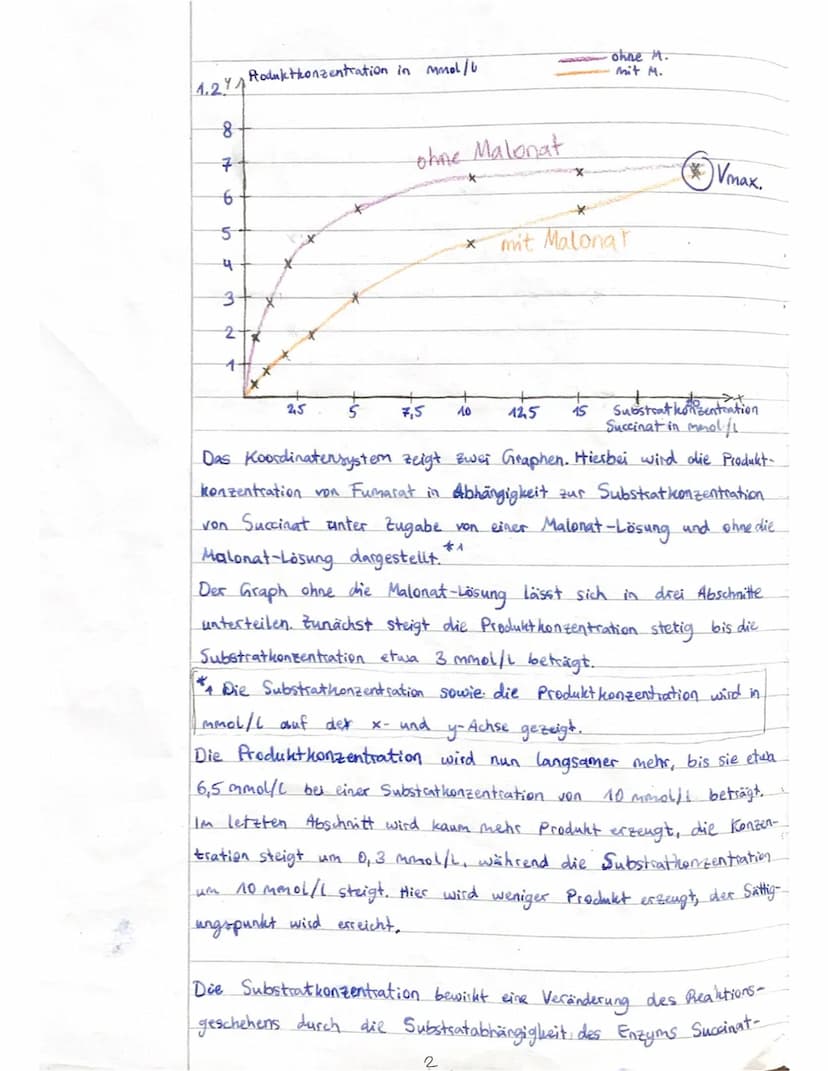 ohne M.
mit M.
1.2. y Produktkonzentration in mmol/L
8
7
6
5
4
3
2
1
ohne Malonat
Vmax.
mit Malonat
2,5 5 7,5 10 12,5 15 20 x
Substratkonzentration
Succinat in mmol/L
Das Koordinatensystem zeigt zwei Graphen. Hierbei wird die Produkt-
konzentration von Fumarat in Abhängigkeit zur Substratkonzentration
von Succinat unter Zugabe von einer Malonat-Lösung und ohne die
Malonat-Lösung dargestellt. *1
Der Graph ohne die Malonat-Lösung lässt sich in drei Abschnitte
unterteilen. Zunächst steigt die Produktkonzentration stetig bis die
Substratkonzentration etwa 3 mmol/L beträgt.
*1 Die Substratkonzentration sowie die Produktkonzentration wird in
mmol/L auf der x- und y-Achse gezeigt.
Die Produktkonzentration wird nun langsamer mehr, bis sie etwa
6,5 mmol/L bei einer Substratkonzentration von 10 mmol/L beträgt.
Im letzten Abschnitt wird kaum mehr Produkt erzeugt, die Konzen-
tration steigt um 0,3 mmol/L, während die Substratkonzentration
um 10 mmol/L steigt. Hier wird weniger Produkt erzeugt, der Sättig-
ungspunkt wird erreicht.
Die Substratkonzentration bewirkt eine Veränderung des Reaktions-
geschehens durch die Substratabhängigkeit des Enzyms Succinat-
2